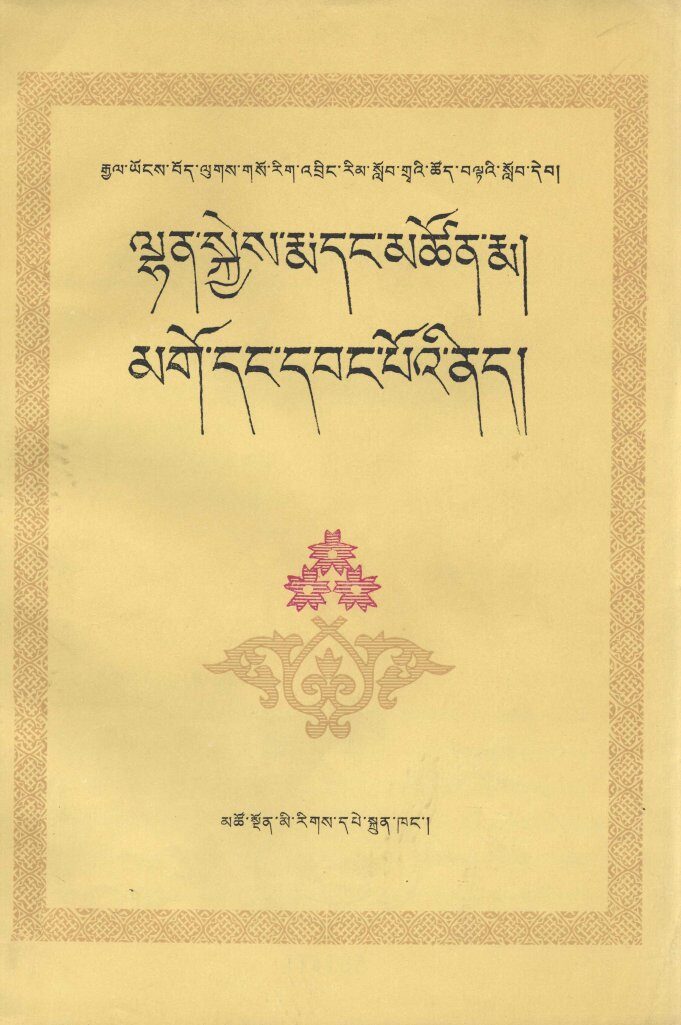 རྒྱལ་ཡོངས་བོད་ལུགས་གསོ་རིག་འབྲིང་རིམ་སློབ་གྲྭའི་ཚོད་བལྟའི་སློབ་དེབ།
ལྷན་སྐྱེས་རྨ་དང་མཚོན་རྨ།
མགོ་དང་དབང་པོའི་ནད།
མཚོ་སྔོན་མི་རིགས་དཔེ་སྐྲུན་ཁང་།